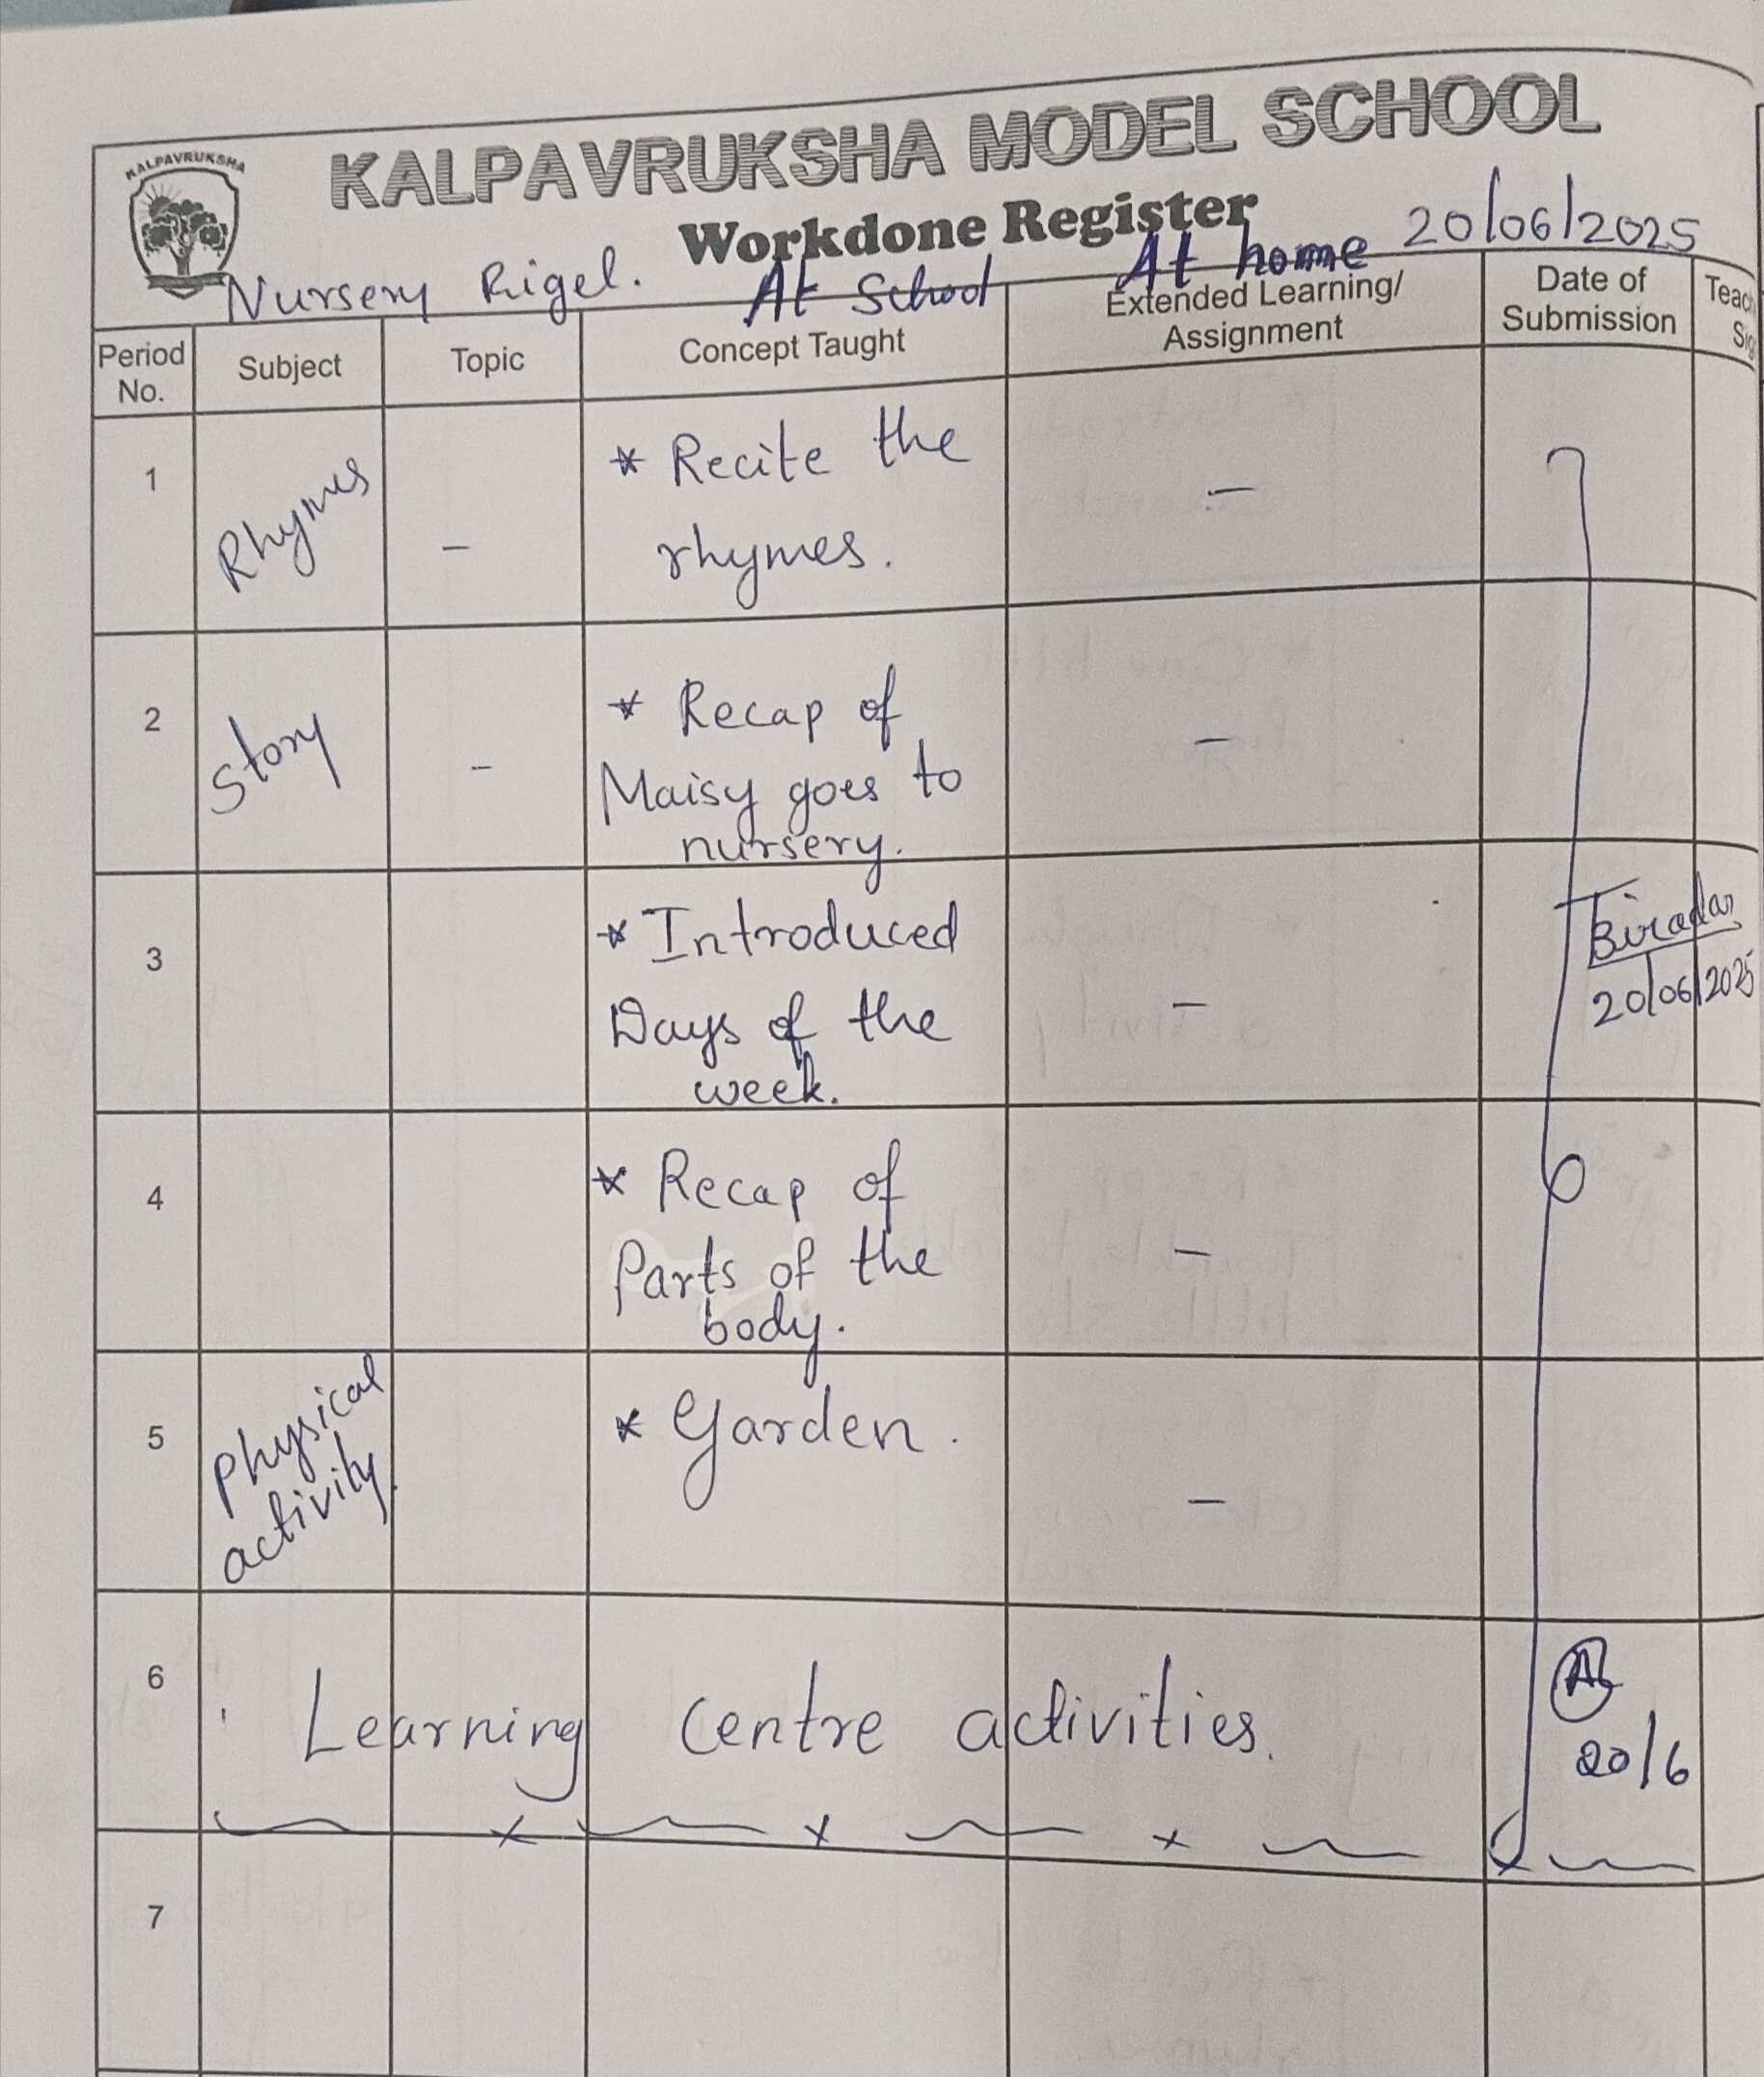 KALPAVRUKSHA
KALPAVRUKSHA MODEL SCHOOL
Workdone Register
20/06/2025
Nursery Rigel.
At School
At home
Period No.
Subject
Topic
Concept Taught
Extended Learning/
Assignment
Date of
Submission
1
Rhymes
-
* Recite the
rhymes.
-
2
Story
-
* Recap of
Maisy goes to
nursery.
-
3
* Introduced
Days of the
week.
-
Biradar
20/06/2025
4
* Recap of
Parts of the
body.
-
5
Physical
activity
* Garden.
-
6
Learning Centre activities.
20/6
7